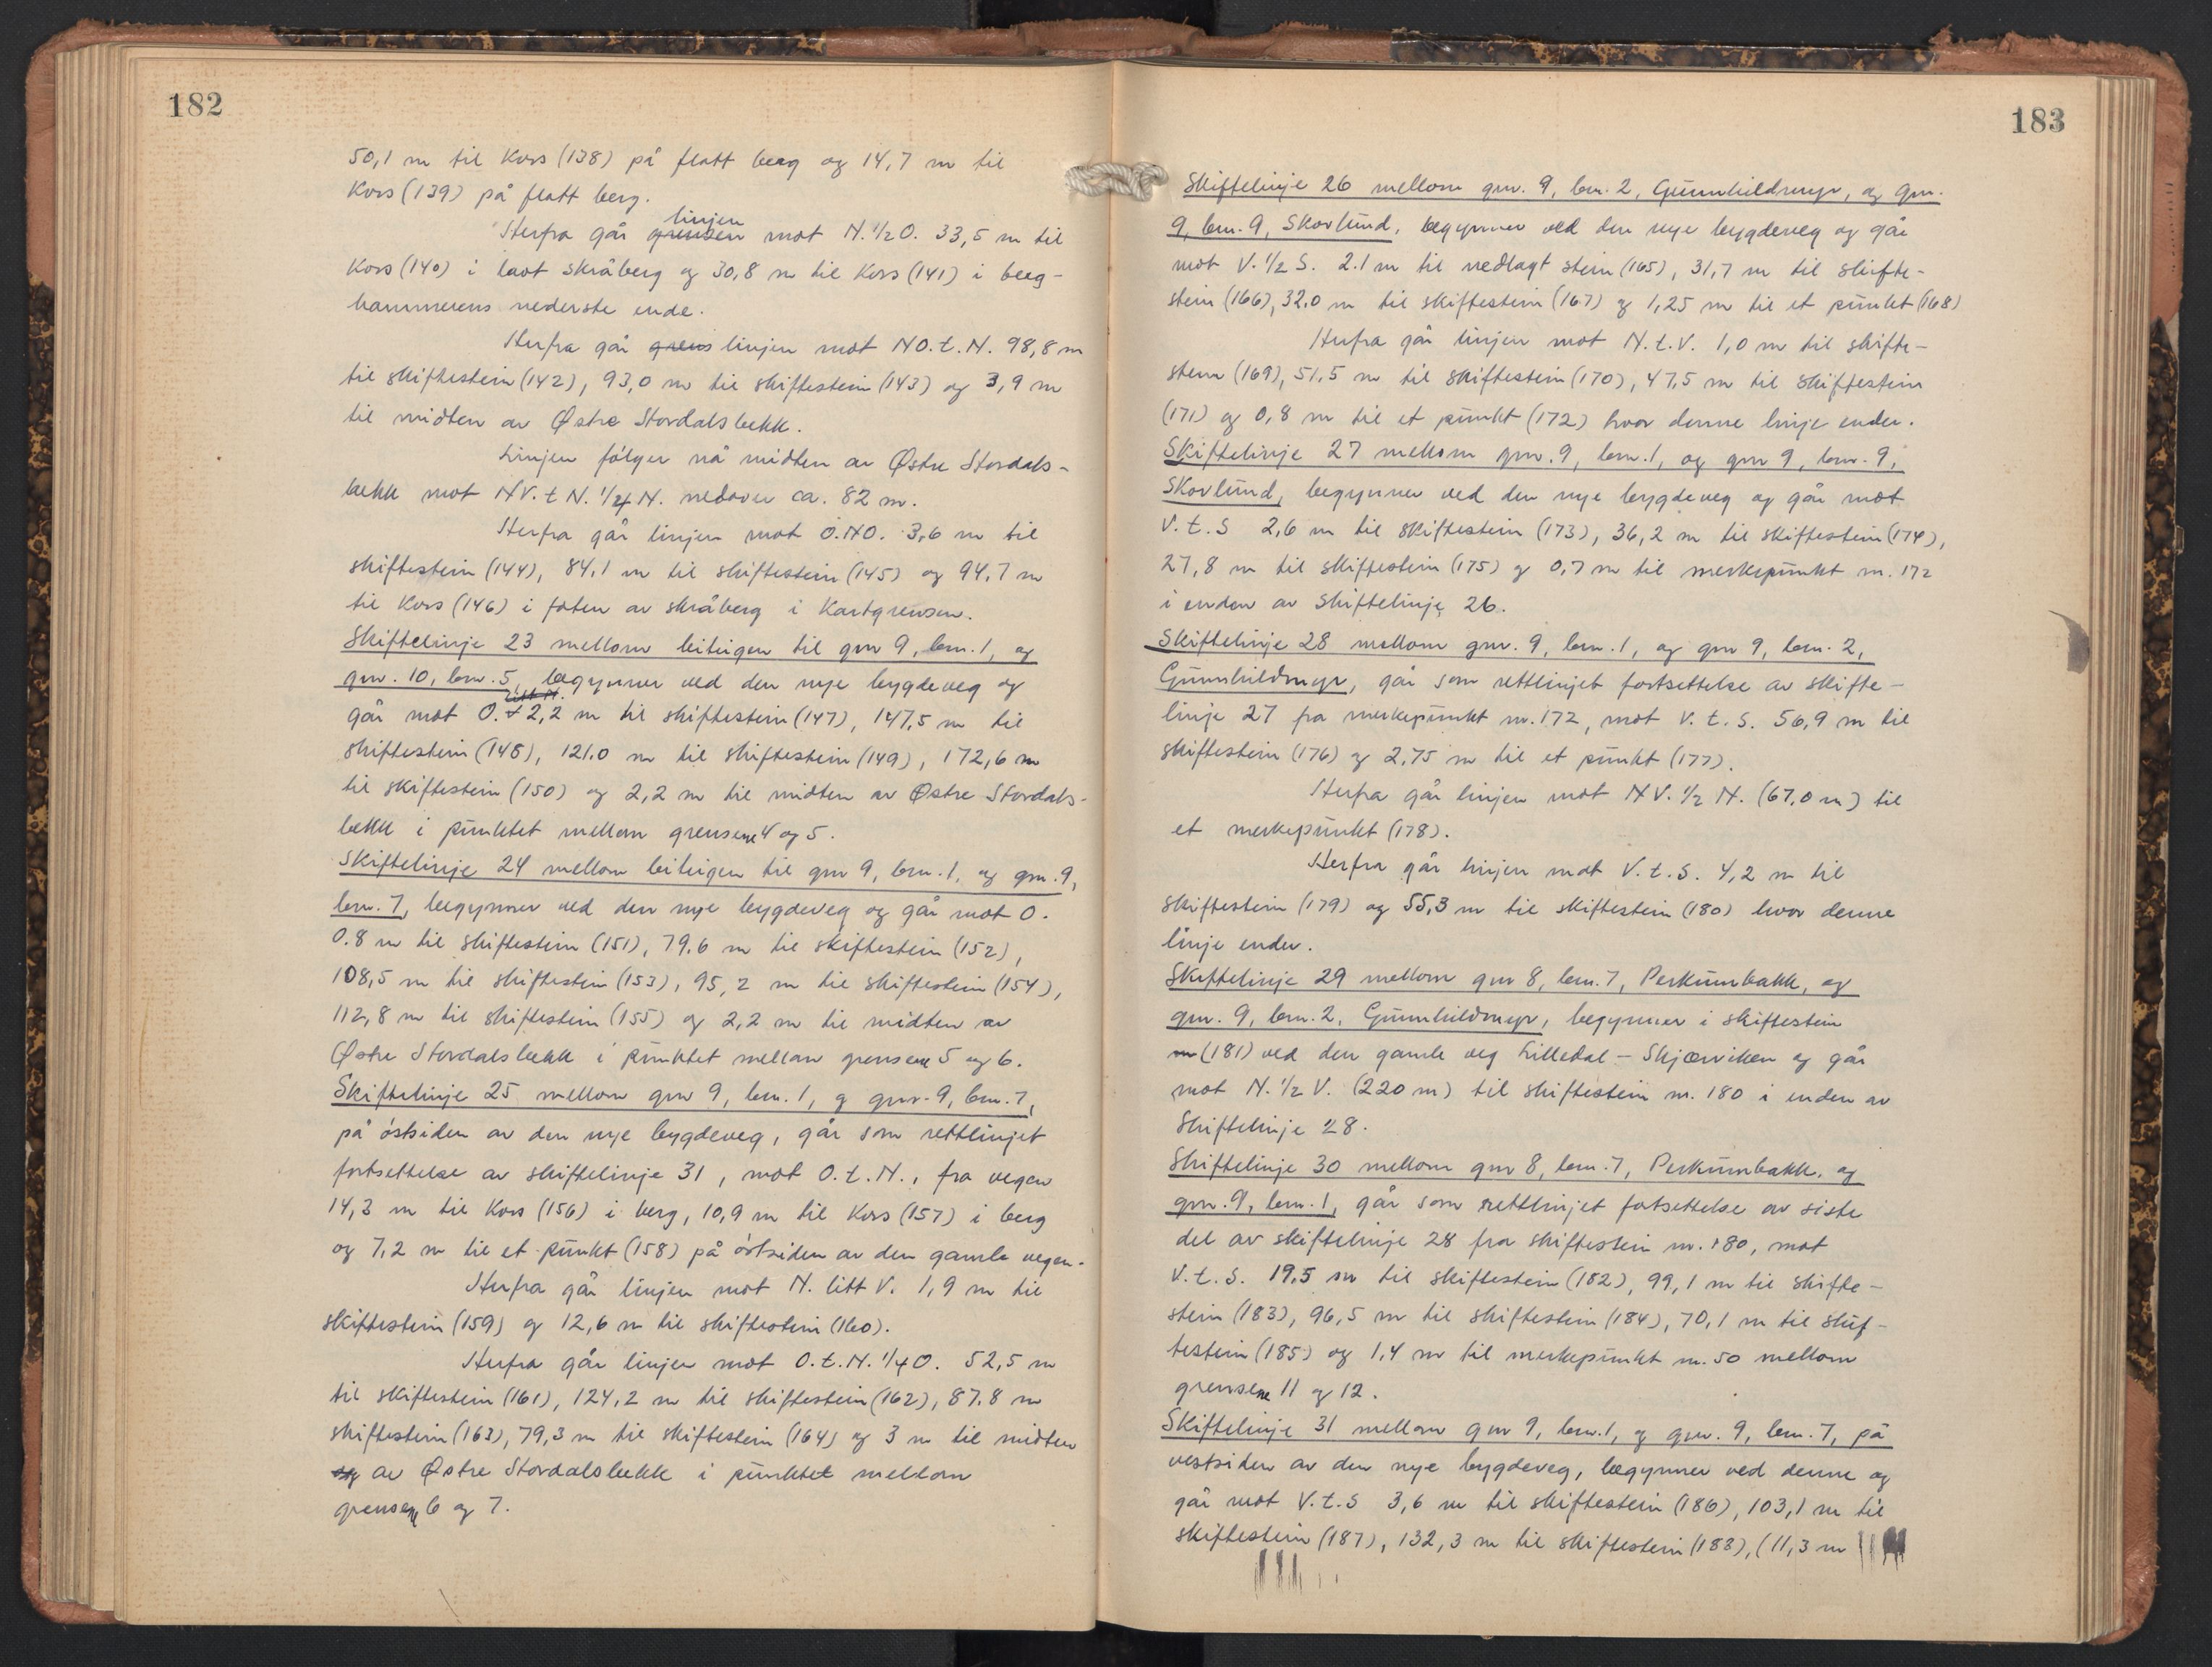 182
50,1 m til Kors (138) på flatt berg og 14,7 m til
Kors (139) på flatt berg.
Herfra går grensen linjen mot N. 1/2 O. 33,5 m til
Kors (140) i lavt skråberg og 30,8 m til Kors (141) i berg-
hammerens nederste ende.
Herfra går grens linjen mot NO. t. N. 98,8 m
til skiftestein (142), 93,0 m til skiftestein (143) og 3,9 m
til midten av Østre Stordalsbekk.
Linjen følger nå midten av Østre Stordals-
bekk mot NV. t N. 1/4 N. nedover ca. 82 m.
Herfra går linjen mot O.NO. 3,6 m til
skiftestein (144), 84,1 m til skiftestein (145) og 94,7 m
til Kors (146) i foten av skråberg i Kartgrensen.
Skiftelinje 23 mellom beitigen til gnr 9, bnr. 1, og
gnr. 10, bnr. 5, begynner ved den nye bygdeveg og
går mot O. litt N. 2,2 m til skiftestein (147), 147,5 m til
skiftestein (148), 121,0 m til skiftestein (149), 172,6 m
til skiftestein (150) og 2,2 m til midten av Østre Stordals-
bekk i punktet mellom grensene 4 og 5.
Skiftelinje 24 mellom beitigen til gnr 9, bnr. 1, og gnr. 9,
bnr. 7, begynner ved den nye bygdeveg og går mot O.
0.8 m til skiftestein (151), 79,6 m til skiftestein (152),
108,5 m til skiftestein (153), 95,2 m til skiftestein (154),
112,8 m til skiftestein (155) og 2,2 m til midten av
Østre Stordalsbekk i punktet mellom grensene 5 og 6.
Skiftelinje 25 mellom gnr 9, bnr. 1, og gnr. 9, bnr. 7,
på østsiden av den nye bygdeveg, går som rettlinjet
fortsettelse av skiftelinje 31, mot O. t. N., fra vegen
14,3 m til Kors (156) i berg, 10,9 m til Kors (157) i berg
og 7,2 m til et punkt (158) på østsiden av den gamle vegen.
Herfra går linjen mot N. litt V. 1,9 m til
skiftestein (159) og 12,6 m til skiftestein (160).
Herfra går linjen mot O. t. N. 1/4 O. 52,5 m
til skiftestein (161), 124,2 m til skiftestein (162), 87,8 m
skiftestein (163), 79,3 m til skiftestein (164) og 3 m til midten
og av Østre Stordalsbekk i punktet mellom
grensene 6 og 7.
183
Skiftelinje 26 mellom gnr. 9, bnr. 2, Gunnhildmyr, og gnr.
9, bnr. 9, Skovlund, begynner ved den nye bygdeveg og går
mot V. 1/2 S. 2.1 m til nedlagt stein (165), 31,7 m til skifte-
stein (166), 32,0 m til skiftestein (167) og 1,25 m til et punkt (168)
Herfra går linjen mot N. t. V. 1,0 m til skifte-
stein (169), 51,5 m til skiftestein (170), 47,5 m til skiftestein
(171) og 0,8 m til et punkt (172) hvor denne linje ender.
Skiftelinje 27 mellom gnr. 9, bnr. 1, og gnr 9, bnr. 9,
Skovlund, begynner ved den nye bygdeveg og går mot
V. t. S 2,6 m til skiftestein (173), 36,2 m til skiftestein (174),
27,8 m til skiftestein (175) og 0,7 m til merkepunkt nr. 172
i enden av skiftelinje 26.
Skiftelinje 28 mellom gnr. 9, bnr. 1, og gnr 9, bnr. 2,
Gunnhildmyr, går som rettlinjet fortsettelse av skifte-
linje 27 fra merkepunkt nr. 172, mot V. t. S. 56,9 m til
skiftestein (176) og 2,75 m til et punkt (177).
Herfra går linjen mot NV. 1/2 N. (67,0 m) til
et merkepunkt (178).
Herfra går linjen mot V. t. S. 4,2 m til
skiftestein (179) og 55,3 m til skiftestein (180) hvor denne
linje ender.
Skiftelinje 29 mellom gnr 8, bnr. 7, Perkumbakk, og
gnr. 9, bnr. 2, Gunnhildmyr, begynner i skiftestein
m (181) ved den gamle veg Lilledal – Skjærviken og går
mot N. 1/2 V. (220 m) til skiftestein nr. 180 i enden av
skiftelinje 28.
Skiftelinje 30 mellom gnr 8, bnr. 7, Perkumbakk, og
gnr. 9, bnr. 1, går som rettlinjet fortsettelse av siste
del av skiftelinje 28 fra skiftestein nr. 180, mot
V. t. S. 19,5 m til skiftestein (182), 99,1 m til skifte-
stein (183), 96,5 m til skiftestein (184), 70,1 m til skif-
testein (185) og 1,4 m til merkepunkt nr. 50 mellom
grensene 11 og 12.
Skiftelinje 31 mellom gnr 9, bnr. 1, og gnr. 9, bnr. 7, på
vestsiden av den nye bygdeveg, begynner ved denne og
går mot V. t. S 3,6 m til skiftestein (186), 103,1 m til
skiftestein (187), 132,3 m til skiftestein (188), (11,3 m